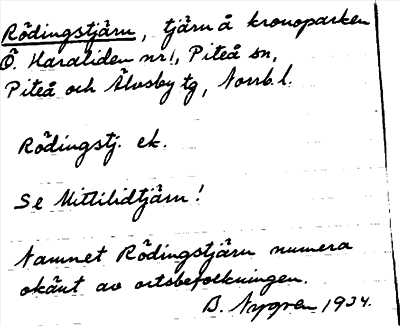 Rödingstjärn, tjärn å kronoparken
Ö. Haraliden nr 1, Piteå sn,
Piteå och Älvsby tg, Norrb. l.
Rödingstj. ek.
Se Mittilidtjärn!
Namnet Rödingstjärn numera
okänt av ortsbefolkningen.
B. Nygren 1934.